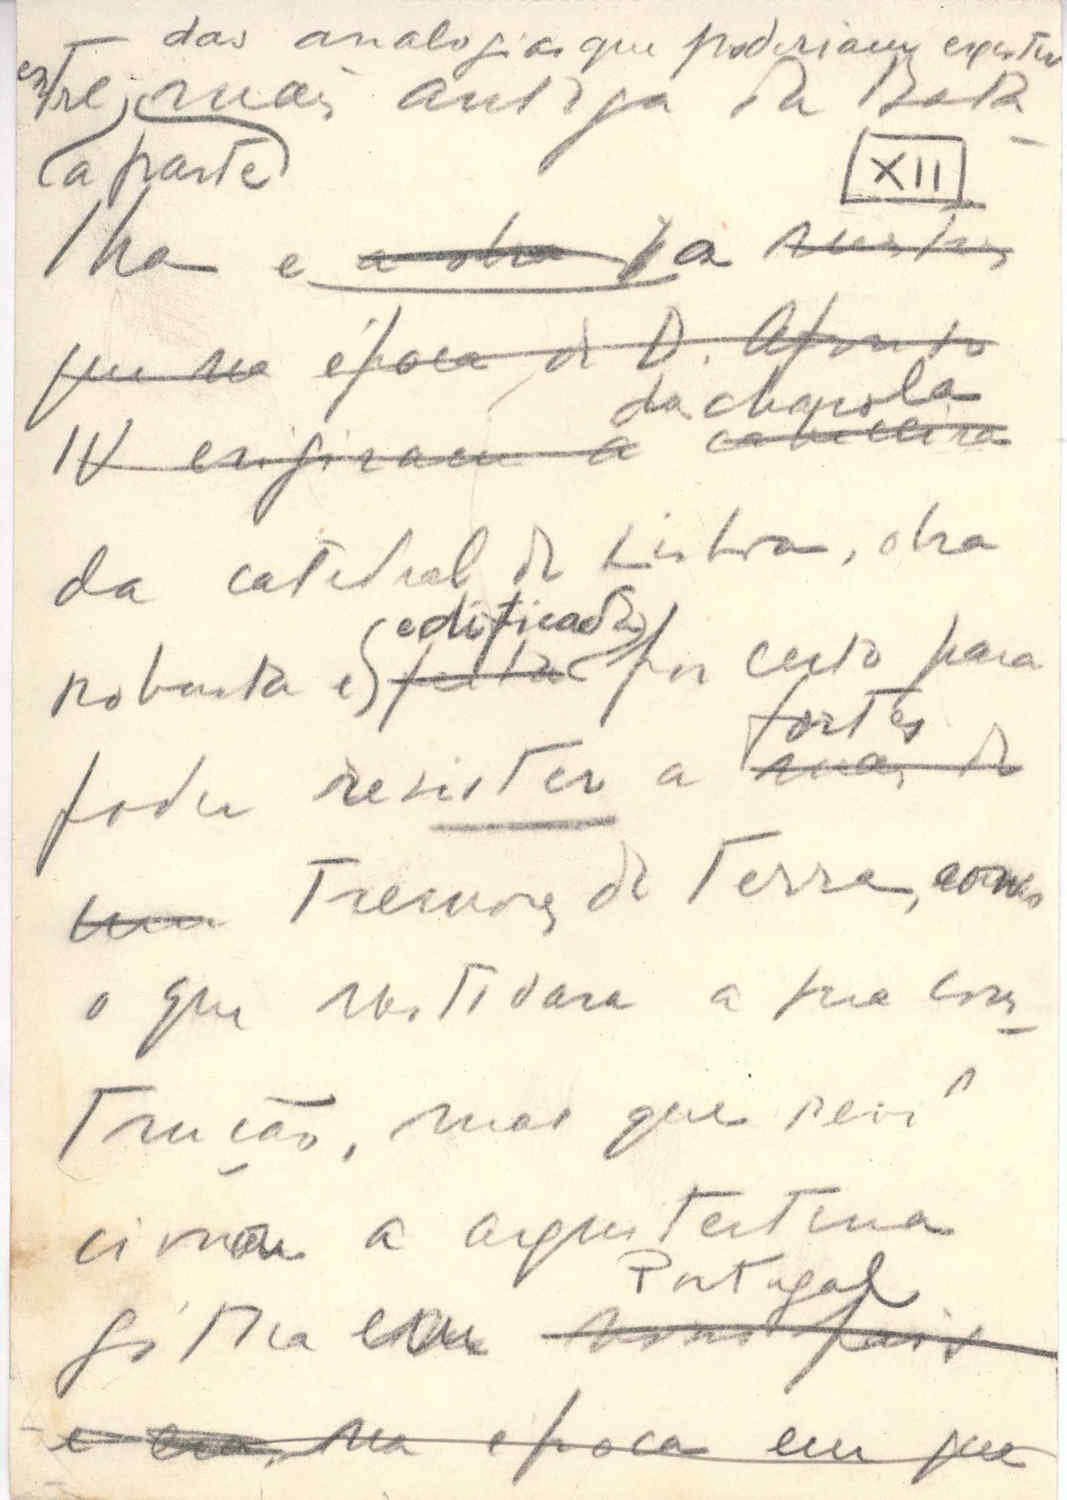 das analogias que poderiam existir
entre, mais antiga da Bata-
a parte
XII
lha e a obra a
que na época de D. Afonso
da charola
IV erigiram a cabeceira
da catedral de Lisboa, obra
edificada
robusta e feita por certo para
fortes
poder resistir a mais de
um tremores de terra, como
o que motivara a sua cons-
trução, mas que
a arquitectura
Portugal
gótica em nosso pais
e na epoca em que